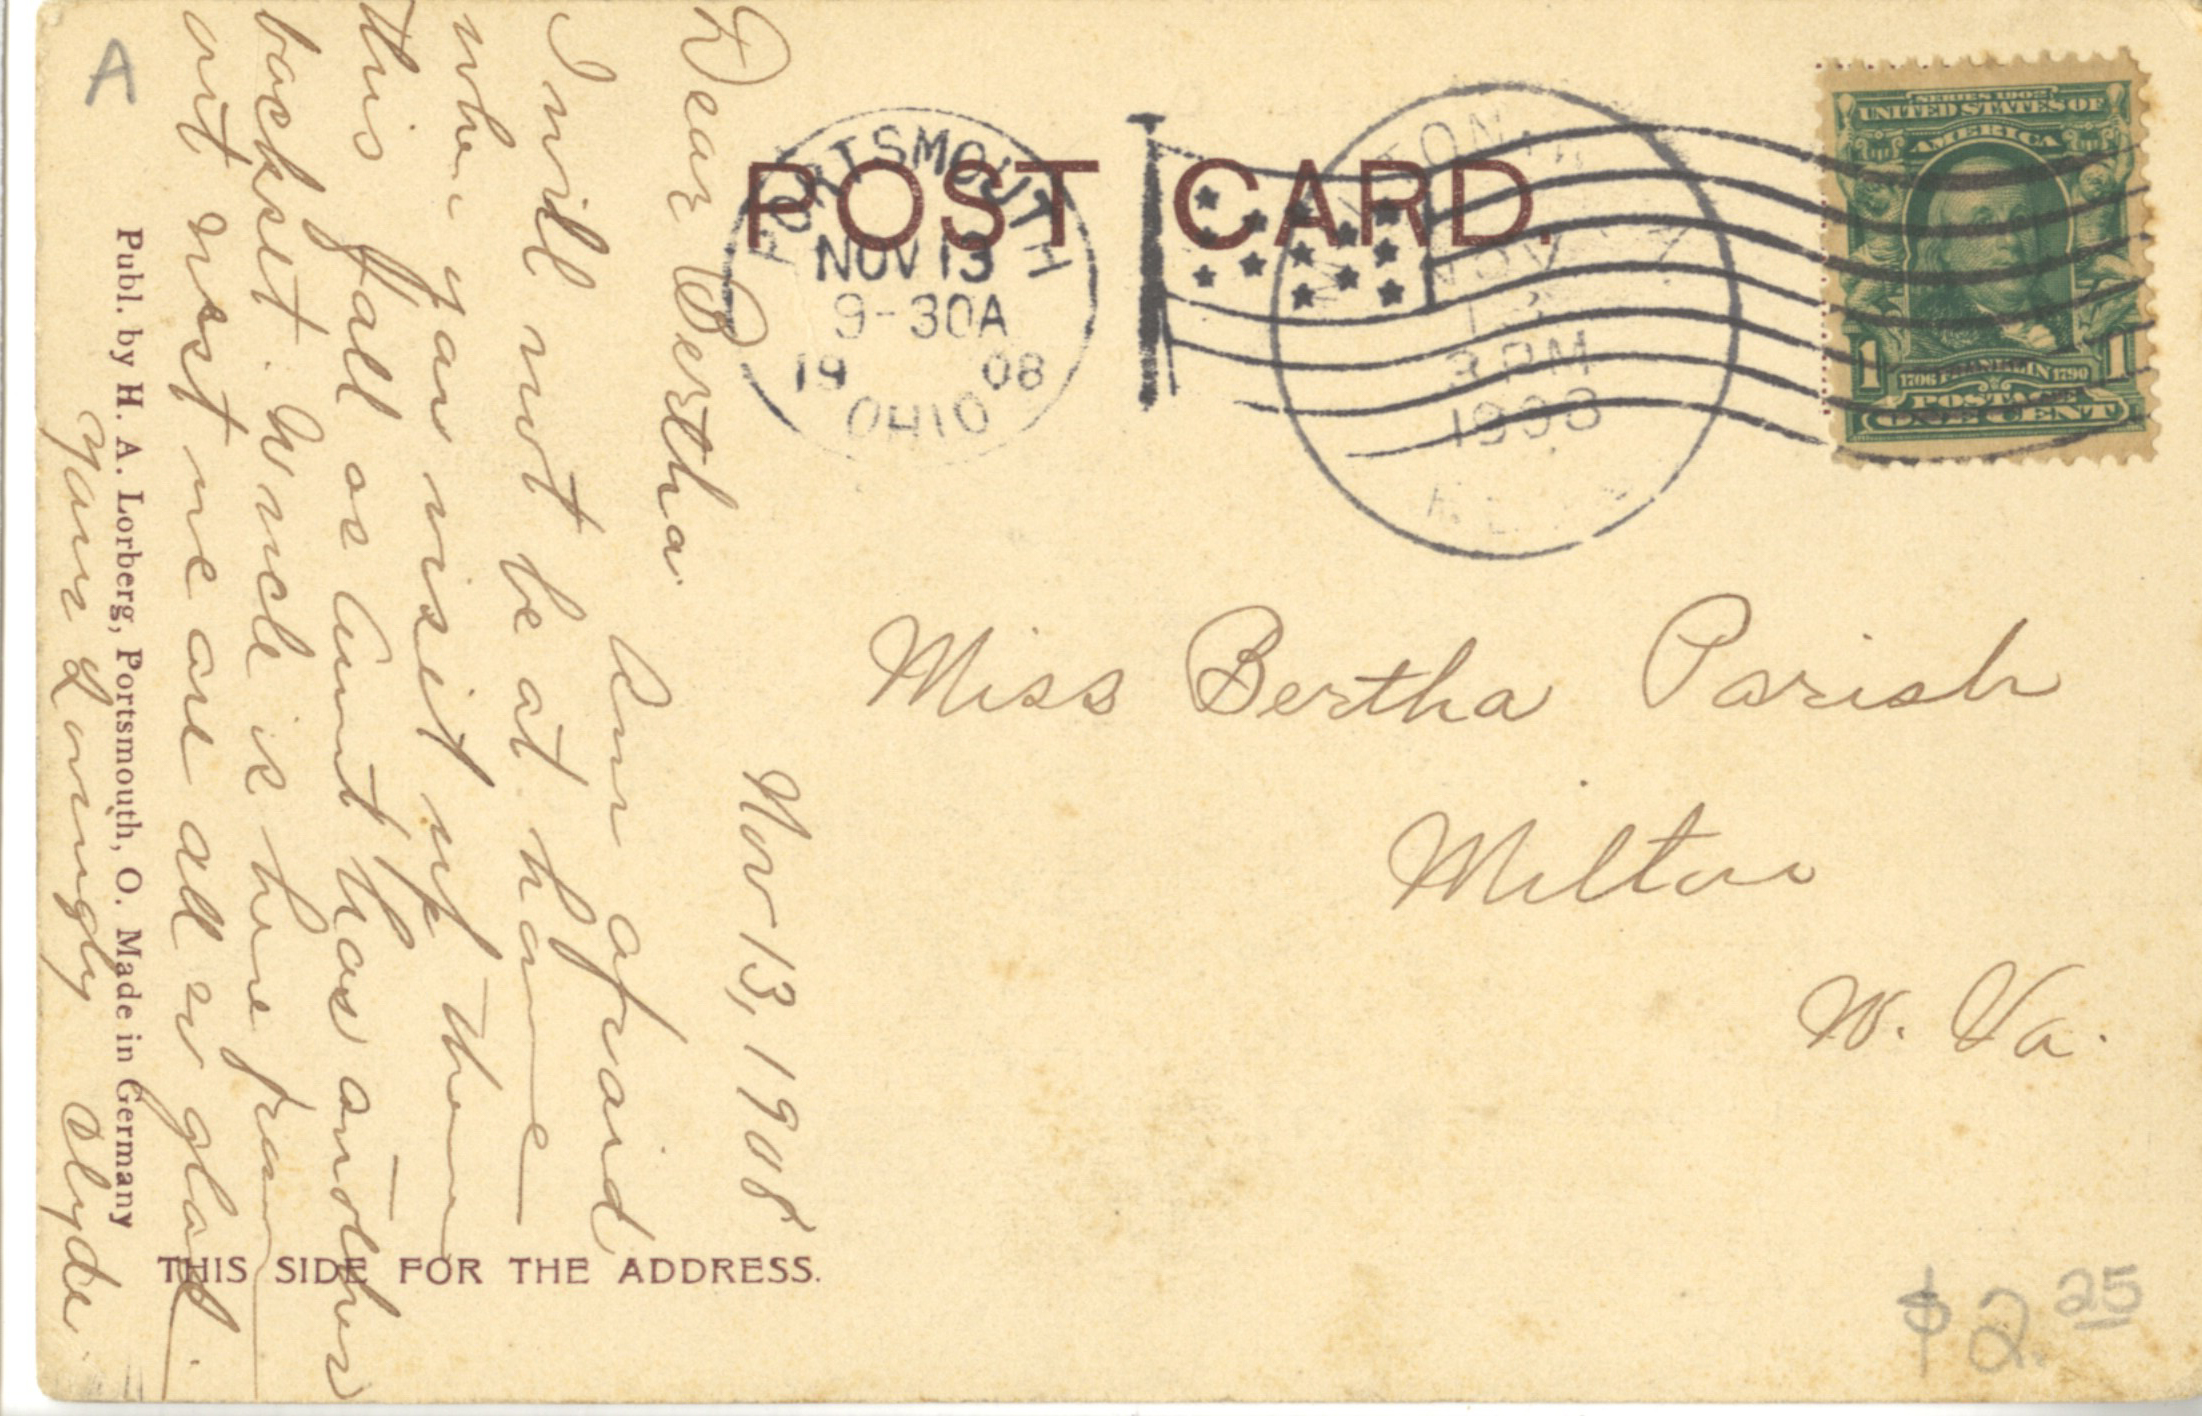 POST CARD.
PORTSMOUTH
NOV 13
9-30A
19 08
OHIO
NOV
3 PM
1908
SERIES 1902
UNITED STATES OF
AMERICA
1 1
1706 FRANKLIN 1790
POSTAGE
ONE CENT
Miss Bertha Parish
Milton
W. Va.
Nov 13, 1908
Dear Bertha.
Am afraid
I will not be at home
when you visit up there
this fall as Aunt has another
backset. Uncle is here from
out west we are all so glad.
Your Lovingly Clyde.
Publ. by H. A. Lorberg, Portsmouth, O. Made in Germany
THIS SIDE FOR THE ADDRESS.
A
$2.25